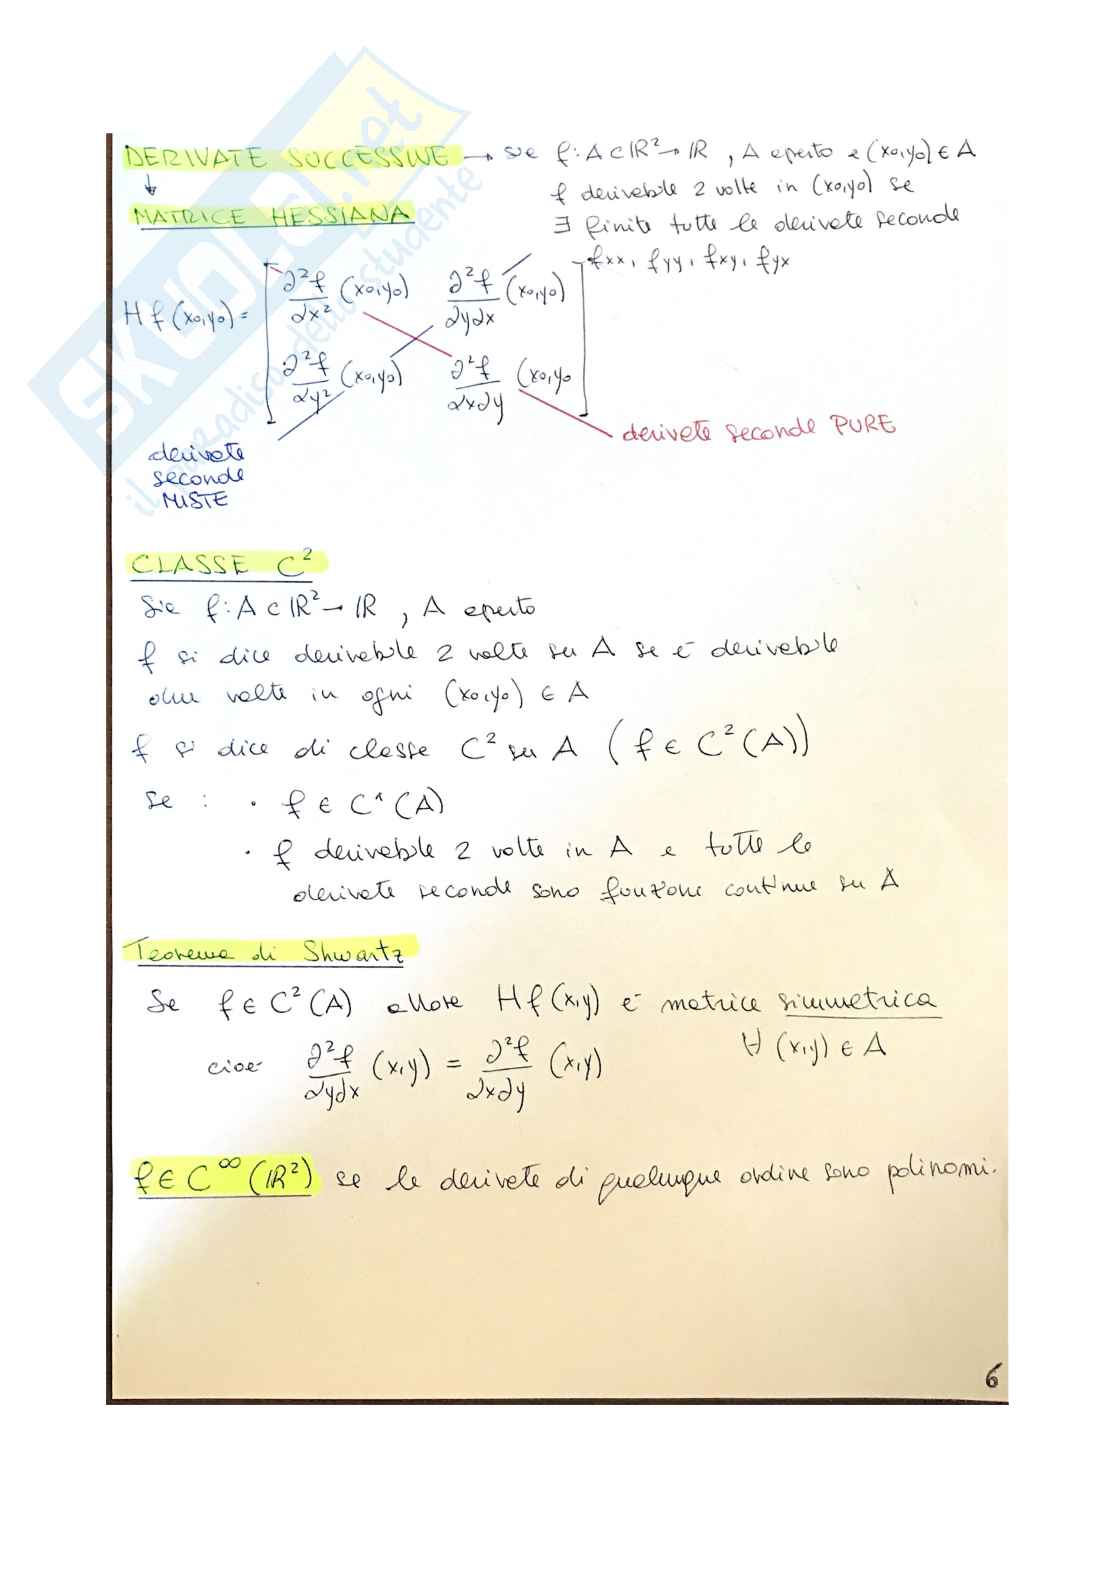 DERIVATE SUCCESSIVE → sia f: A ⊂ ℝ² → ℝ, A aperto e (x₀,y₀) ∈ A
↓ f derivabile 2 volte in (x₀,y₀) se
MATRICE HESSIANA ∃ finite tutte le derivate seconde
fxx, fyy, fxy, fyx
Hf(x₀,y₀) = [ ∂²f/∂x² (x₀,y₀) ∂²f/∂y∂x (x₀,y₀)
∂²f/∂y² (x₀,y₀) ∂²f/∂x∂y (x₀,y₀ ]
derivate seconde PURE
derivate
seconde
MISTE
CLASSE C²
Sia f: A ⊂ ℝ² → ℝ, A aperto
f si dice derivabile 2 volte su A se è derivabile
due volte in ogni (x₀,y₀) ∈ A
f si dice di classe C² su A (f ∈ C²(A))
se : • f ∈ C¹(A)
• f derivabile 2 volte in A e tutte le
derivate seconde sono funzioni continue su A
Teorema di Shwartz
Se f ∈ C²(A) allora Hf(x,y) è matrice simmetrica
cioè ∂²f/∂y∂x (x,y) = ∂²f/∂x∂y (x,y) ∀ (x,y) ∈ A
f ∈ C^∞(ℝ²) se le derivate di qualunque ordine sono polinomi.
6
SKUOLA.net
il paradiso dello studente